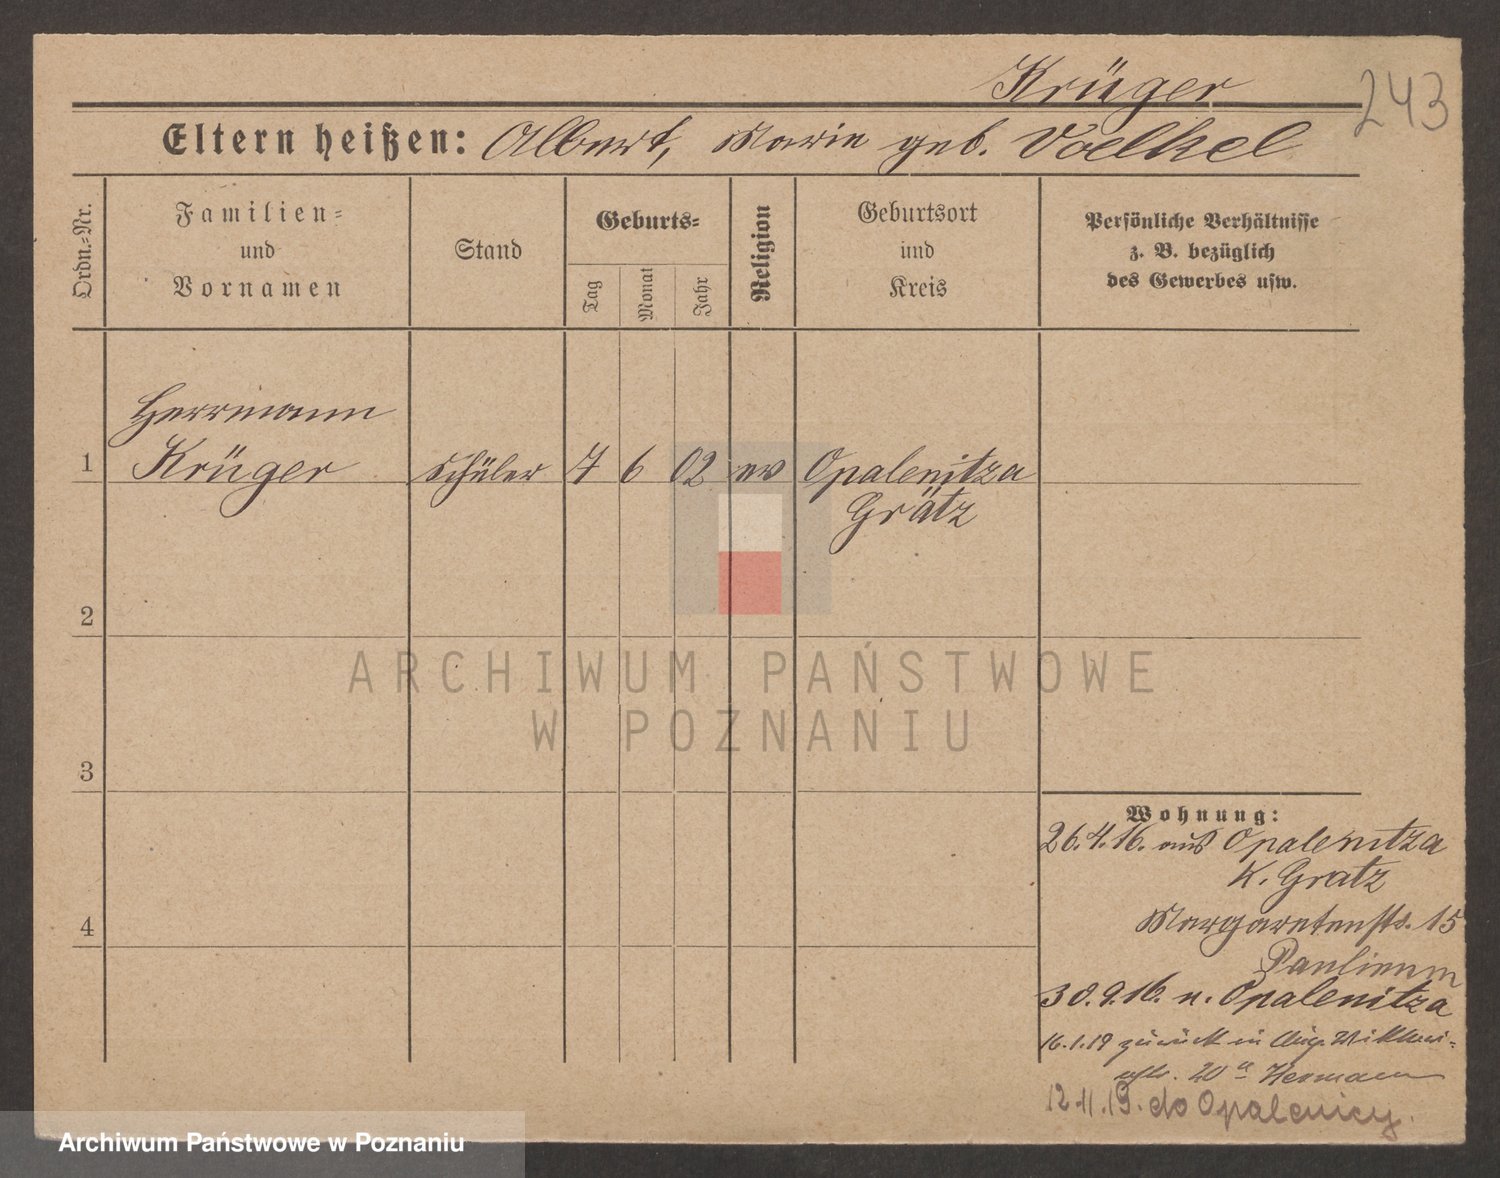 Krüger
243
Eltern heißen: Albert, Marie geb. Voelkel
Ordn.-Nr.
Familien-
und
Vornamen
Stand
Geburts-
Tag
Monat
Jahr
Religion
Geburtsort
und
Kreis
Persönliche Verhältnisse
z. B. bezüglich
des Gewerbes usw.
Herrmann
1 Krüger Schüler 7 6 02 ev Opalenitza
Grätz
2
3
4
Wohnung:
26.4.16. aus Opalenitza
K. Gratz
Margaretenstr. 15
Paulinum
30.9.16. n. Opalenitza
16.1.19 zurück in
20a Hermann
12.11.19. do Opalenicy.
ARCHIWUM PAŃSTWOWE
W POZNANIU
Archiwum Państwowe w Poznaniu